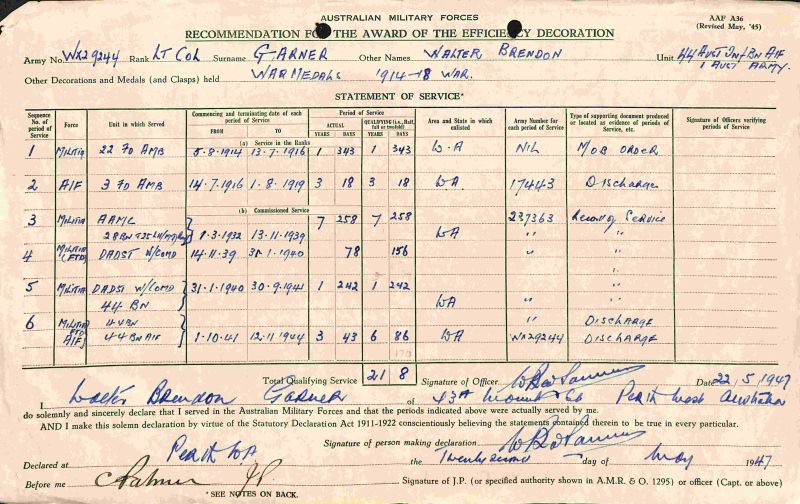 AUSTRALIAN MILITARY FORCES
AAF A36
(Revised May, '45)
RECOMMENDATION FOR THE AWARD OF THE EFFICIENCY DECORATION
Army No. WX29244 Rank LT COL Surname GARNER Other Names WALTER BRENDON Unit 44 AUST INF BN AIF
1 AUST ARMY.
Other Decorations and Medals (and Clasps) held WAR MEDALS 1914-18 WAR.
STATEMENT OF SERVICE*
Sequence No. of period of Service Force Unit in which Served Commencing and terminating date of each period of Service FROM TO Period of Service ACTUAL YEARS DAYS QUALIFYING (i.e., Half, full or twofold) YEARS DAYS Area and State in which enlisted Army Number for each period of Service Type of supporting document produced or located as evidence of periods of Service, etc. Signature of Officers verifying periods of Service
(a) Service in the Ranks
1 MILITIA 22 FD AMB 5-8-1914 13-7-1916 1 343 1 343 W-A NIL MOB ORDER
2 AIF 3 FD AMB 14-7-1916 1-8-1919 3 18 3 18 WA 17443 Discharge
(b) Commissioned Service
3 Militia AAMC 7 258 7 258 237363 Record of Service
1-3-1932 13-11-1939 WA " "
4 MILITIA (FTD) DADST W/COMD 14-11-39 31-1-1940 78 156 " "
5 MILITIA DADST W/COMD 31-1-1940 30-9-1941 1 242 1 242 " "
44 BN WA "
6 MILITIA 44BN DISCHARGE
FTD AIF 44 BN AIF 1-10-41 12-11-1944 3 43 6 86 WA WX29244 DISCHARGE
170
Total Qualifying Service 21 8 Signature of Officer Date 22/5/1947
I, Walter Brendon GARNER of 43A Mount St Perth West Australia
do solemnly and sincerely declare that I served in the Australian Military Forces and that the periods indicated above were actually served by me.
AND I make this solemn declaration by virtue of the Statutory Declaration Act 1911-1922 conscientiously believing the statements contained therein to be true in every particular.
Signature of person making declaration
Declared at Perth WA the Twenty second day of May 1947
Before me JP Signature of J.P. (or specified authority shown in A.M.R. & O. 1295) or officer (Capt. or above)
*SEE NOTES ON BACK.